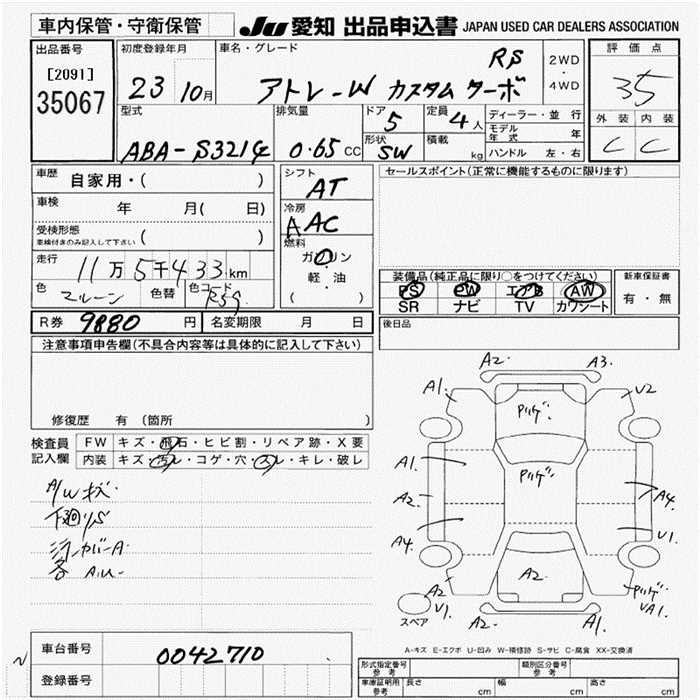 車内保管・守衛保管
JU 愛知 出品申込書 JAPAN USED CAR DEALERS ASSOCIATION
出品番号
[2091]
35067
初度登録年月
23 10月
車名・グレード
アトレーW カスタム ターボ RS
2WD
・
4WD
評価点
35
外装 内装
C C
型式
ABA-S321G
排気量
0.65 CC
ドア
5
形状
SW
定員
4人
積載
kg
ディーラー・並行
モデル年式 年
ハンドル 左・右
車歴 自家用・( )
車検 年 月( 日)
受検形態
車検付きのみ記入して下さい ( )
走行 11万5千433km
色 マルーン 色替 色コード R59
シフト
AT
冷房
AAC
燃料
ガソリン
軽・油
( )
セールスポイント(正常に機能するものに限ります)
装備品(純正品に限り○をつけてください)
PS PW エアB AW
SR ナビ TV カワシート
新車保証書
有・無
R券 9880 円 名変期限 月 日
後日品
注意事項申告欄(不具合内容等は具体的に記入して下さい)
修復歴 有 (箇所 )
検査員記入欄
FW キズ・飛石・ヒビ割・リペア跡・X要
内装 キズ・汚レ・コゲ・穴・スレ・キレ・破レ
A/Wキズ・
下廻りS
ミラーカバーA
各 A.U
A2. A3.
A1. U2
Pリゲ
A1. Pリゲ
A2. A4.
A4. U1.
A2 A2. Pリゲ
U1. A2. A1. UA1.
スペア
A-キズ E-エクボ U-凹み W-補修跡 S-サビ C-腐食 XX-交換済
車台番号 0042710
登録番号
N
型式指定番号 参考 類別区分番号 参考
車庫証明用 参考 長さ cm 幅 cm 高さ cm